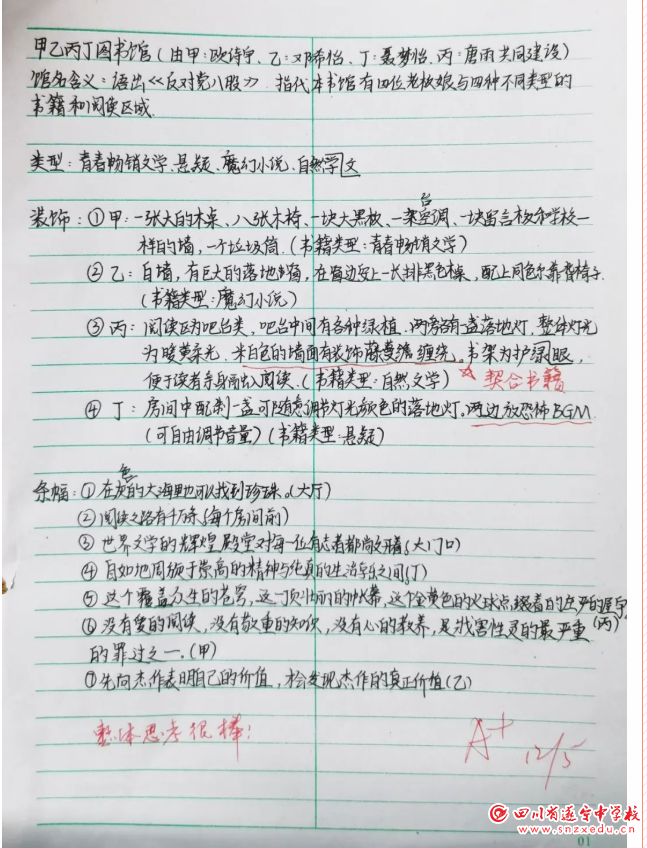 甲乙丙丁图书馆(由甲:欧诗宇、乙:邓希怡、丁:聂梦怡、丙:唐雨共同建设)
馆名含义:语出《反对党八股》.指代本书馆有四位老板娘与四种不同类型的
书籍和阅读区域.
类型:青春畅销文学、悬疑、魔幻小说、自然学文
装饰:①甲:一张大的木桌、八张木椅、一块大黑板、一台空调、一块留言板和学校一
样的墙,一个垃圾筒.(书籍类型:青春畅销文学)
②乙:白墙,有巨大的落地窗,在窗边安上一长排黑色木桌,配上同色系靠背椅子.
(书籍类型:魔幻小说)
③丙:阅读区为吧台类,吧台中间有各种绿植.两旁各有一盏落地灯.整体灯光
为暖黄柔光.米白色的墙面有装饰藤蔓缠绕.书架为护眼,
便于读者亲身融入阅读.(书籍类型:自然文学) ☆契合书籍
④丁:房间中配制一盏可随意调节灯光颜色的落地灯.两边放恐怖BGM
(可自由调节音量)(书籍类型:悬疑)
条幅:①在灰色的大海里也可以找到珍珠。(大厅)
②阅读之路有千万条(每个房间前)
③世界文学的辉煌殿堂对每一位有志者都敞开着(大门口)
④自如地周旋于崇高的精神与纯真的生活乐之间(丁)
⑤这个覆盖众生的苍穹,这一顶壮丽的帐幕,这个金黄色的火球点缀着的庄严的屋宇
(丙)
⑥没有爱的阅读,没有敬重的知识,没有心的教养,是戕害性灵的最严重
的罪过之一.(甲)
⑦先向杰作表明自己的价值,才会发现杰作的真正价值(乙)
整体思考很棒!
A+
12/5
四川省遂宁中学校
www.snzxedu.cn
01